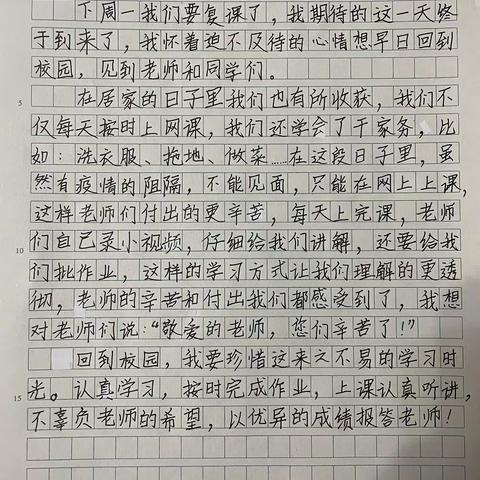 下周一我们要复课了，我期待的这一天终
于到来了，我怀着迫不及待的心情想早日回到
校园，见到老师和同学们。
5 在居家的日子里我们也有所收获，我们不
仅每天按时上网课，我们还学会了干家务，比
如：洗衣服、拖地、做菜……在这段日子里，虽
然有疫情的阻隔，不能见面，只能在网上上课，
这样老师们付出的更辛苦，每天上完课，老师
10 们自己录小视频，仔细给我们讲解，还要给我
们批作业，这样的学习方式让我们理解的更透
彻，老师的辛苦和付出我们都感受到了，我想
对老师们说：“敬爱的老师，您们辛苦了！”
回到校园，我要珍惜这来之不易的学习时
15 光。认真学习，按时完成作业，上课认真听讲，
不辜负老师的希望，以优异的成绩报答老师！